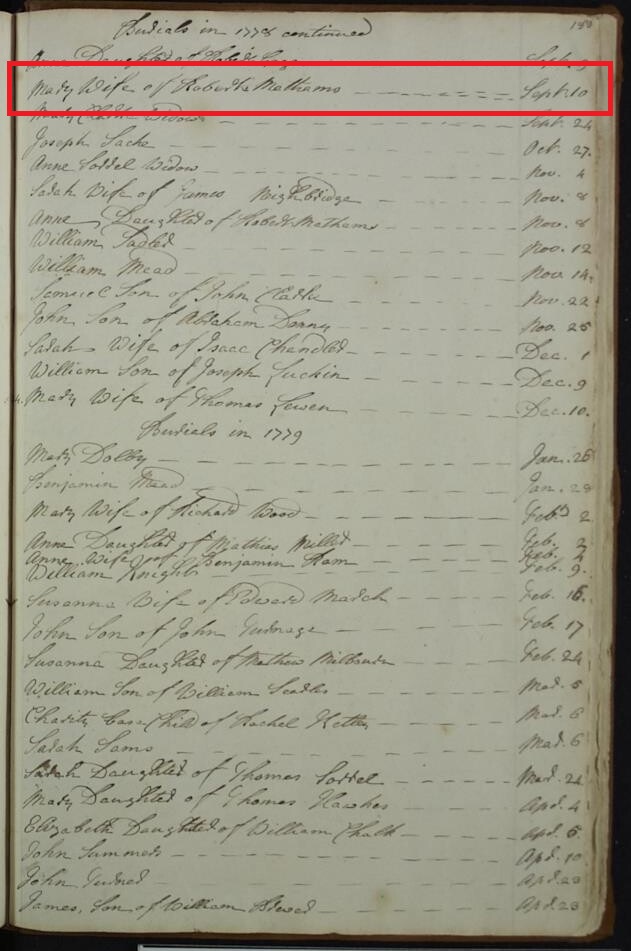 Burials in 1778 continued
180
Anne Daughter of Robert Sept. 9
Mary Wife of Robert Mathams Sept. 10
Mary Clark Widow Sept. 24
Joseph Sachs Oct. 27.
Anne Sorrel Widow Nov. 4
Sarah Wife of James Nov. 8
Anne Daughter of Robert Mathams Nov. 8
William Nov. 12
William Mead Nov. 14.
Samuel Son of John Clarke Nov. 22
John Son of Abraham Nov. 25
Sarah Wife of Isaac Chandler Dec. 1
William Son of Joseph Luckin Dec. 9
Mary Wife of Thomas Lewen Dec. 10.
Burials in 1779
Mary Dolby Jan. 26
Benjamin Mead Jan. 28
Mary Wife of Richard Wood Feb. 2
Anne Daughter of Mathias Miller Feb. 2
Anne Wife of Benjamin Ham Feb.
William Knight Feb. 9.
Susanna Wife of Edward March Feb. 16.
John Son of John Turnage Feb. 17
Susanna Daughter of Mathew Feb. 24
William Son of William Mar. 5
Charity Base Child of Rachel Mar. 6
Sarah Sams Mar. 6
Sarah Daughter of Thomas Sorrel Mar. 24
Mary Daughter of Thomas Hawkes Apr. 4
Elizabeth Daughter of William Chalk Apr. 5
John Summers Apr. 10
John Turner Apr. 23
James, Son of William Apr. 23